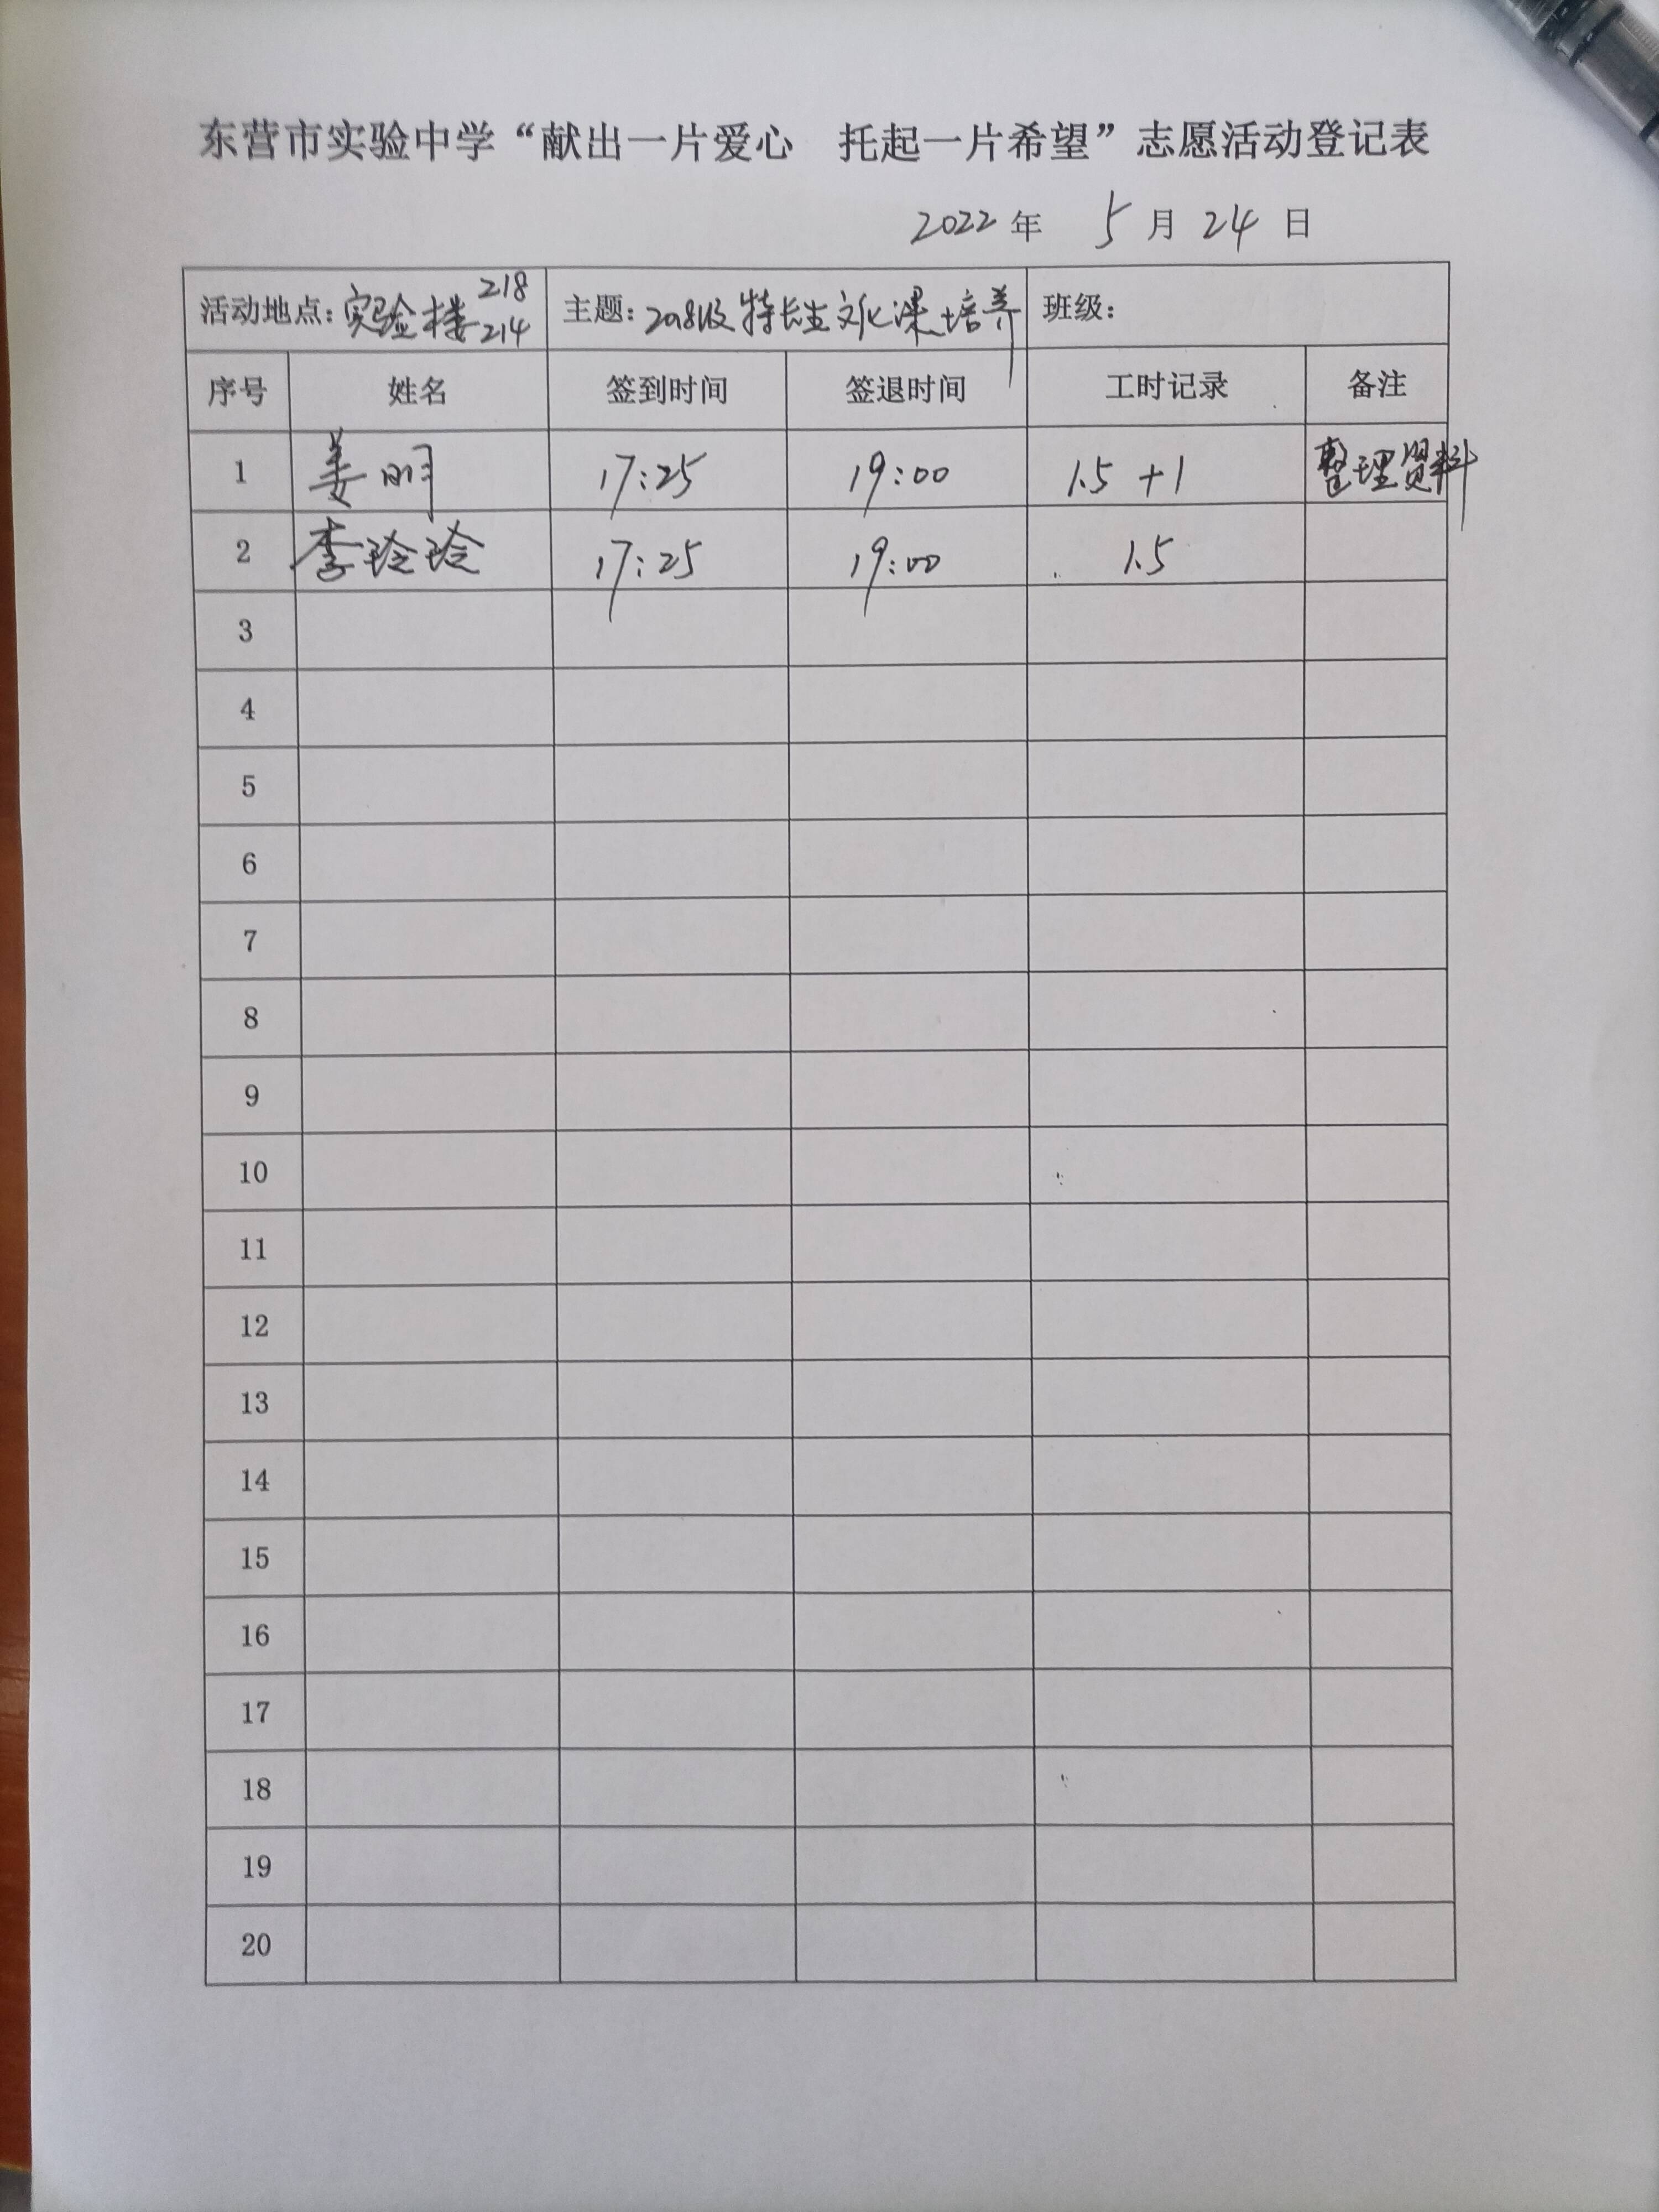 东营市实验中学“献出一片爱心 托起一片希望”志愿活动登记表
2022 年 5 月 24 日
活动地点：实验楼 218 214 主题：2018级特长生文化课培养 班级：
序号 姓名 签到时间 签退时间 工时记录 备注
1 姜明 17:25 19:00 1.5 +1 整理资料
2 李玲玲 17:25 19:00 1.5
3
4
5
6
7
8
9
10
11
12
13
14
15
16
17
18
19
20